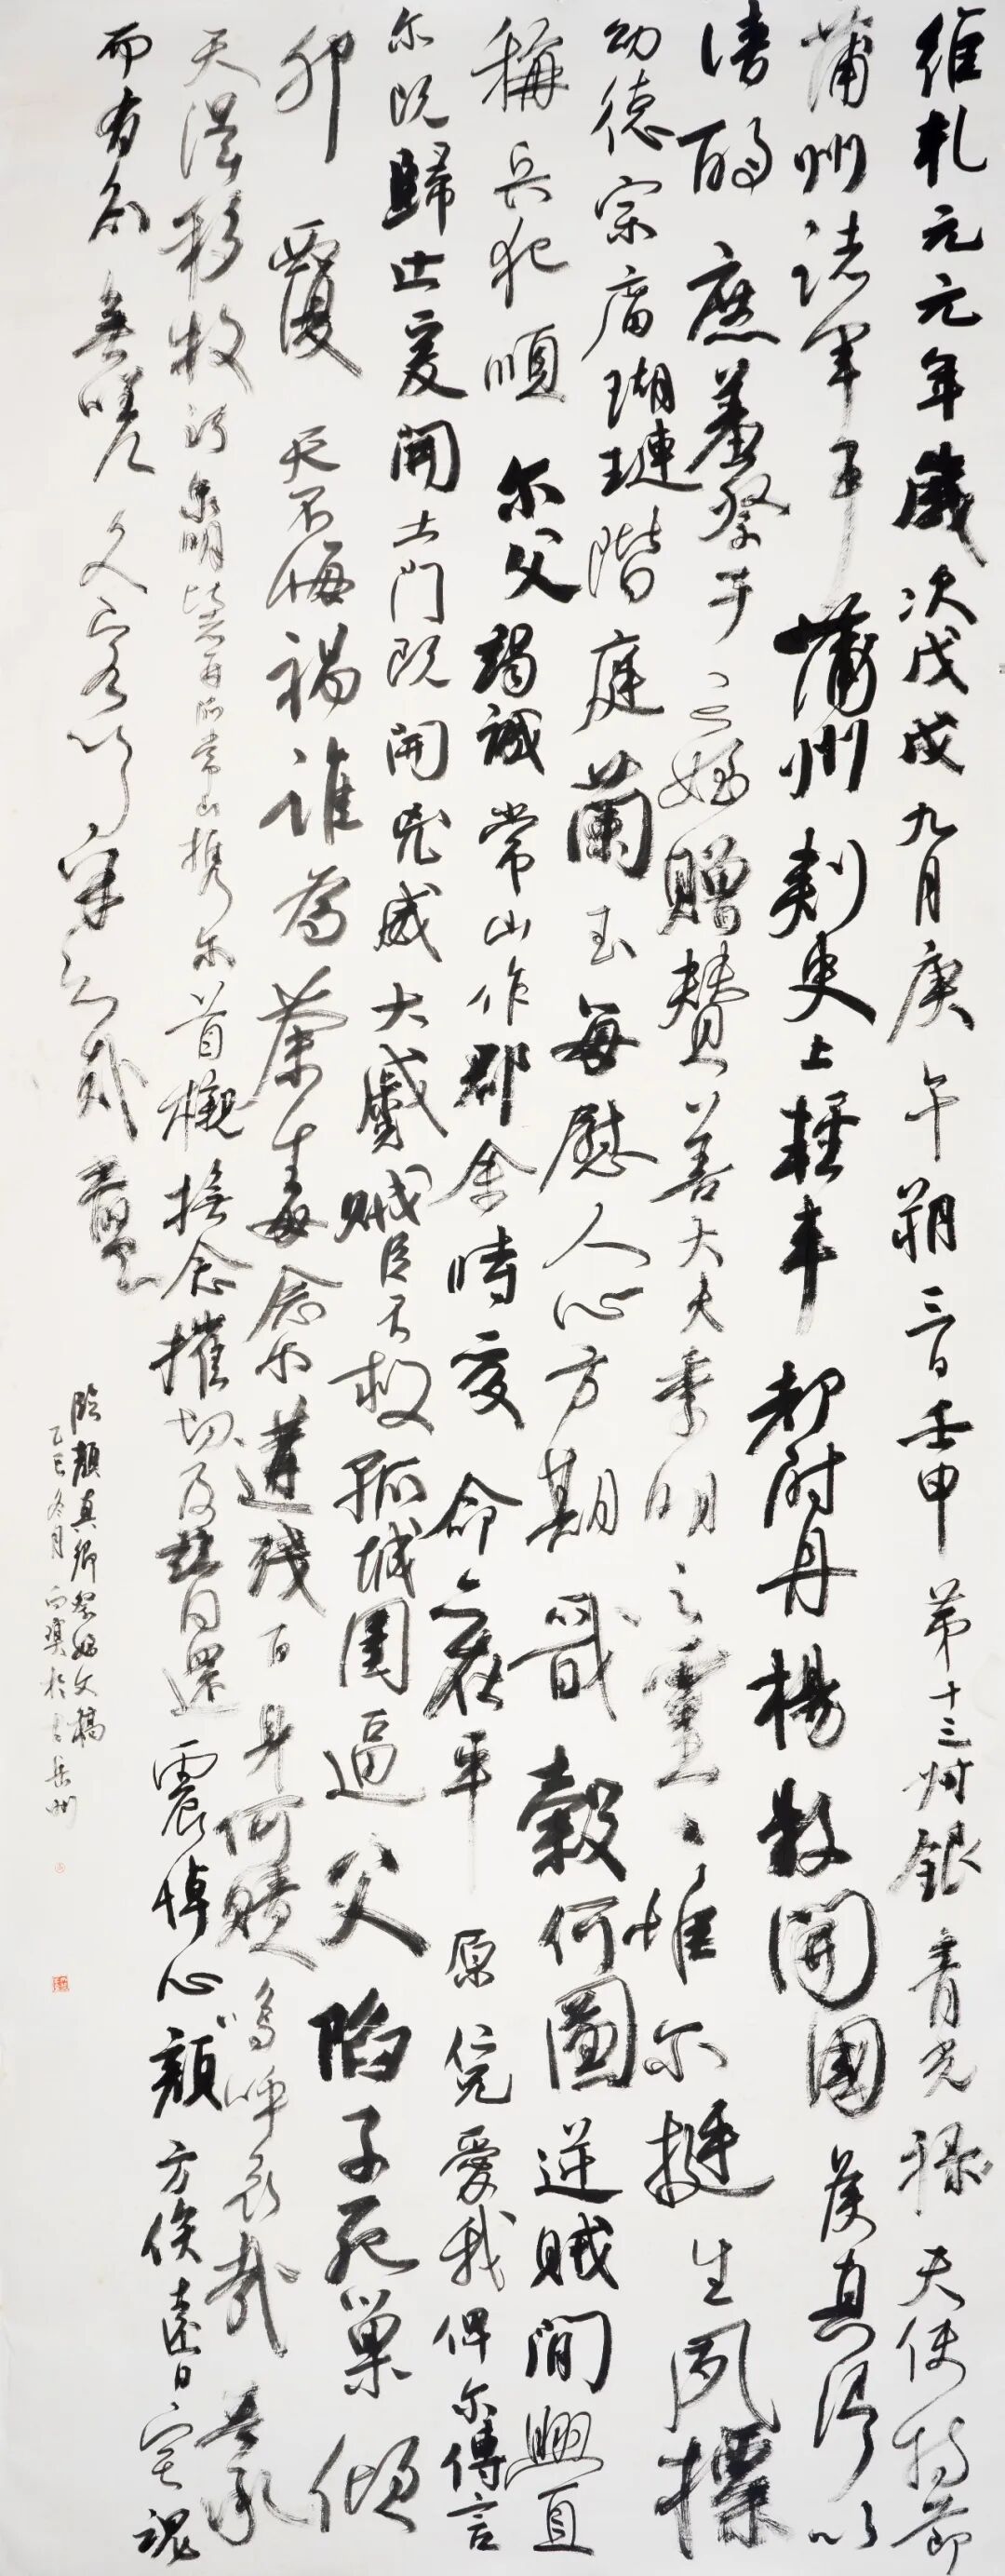 維乾元元年歲次戊戌九月庚午朔三日壬申第十三叔銀青光祿夫使持節
蒲州諸軍事蒲州刺史上輕車都尉丹楊縣開國侯真卿以
清酌庶羞祭于亡姪贈贊善大夫季明之靈惟爾挺生夙標
幼德宗廟瑚璉階庭蘭玉每慰人心方期戩穀何圖逆賊間舋
稱兵犯順爾父竭誠常山作郡余時受命亦在平原仁兄愛我俾爾傳言
爾既歸止爰開土門土門既開兇威大蹙賊臣不救孤城圍逼父陷子死巢傾
卵覆天不悔禍誰為荼毒念爾遘殘百身何贖嗚呼哀哉吾承
天澤移牧河關泉明比者再陷常山攜爾首櫬及茲同還撫念摧切震悼心顏方俟遠日卜爾幽宅魂
而有知無嗟久客嗚呼哀哉尚饗
臨顏真卿祭姪文稿
乙巳冬月